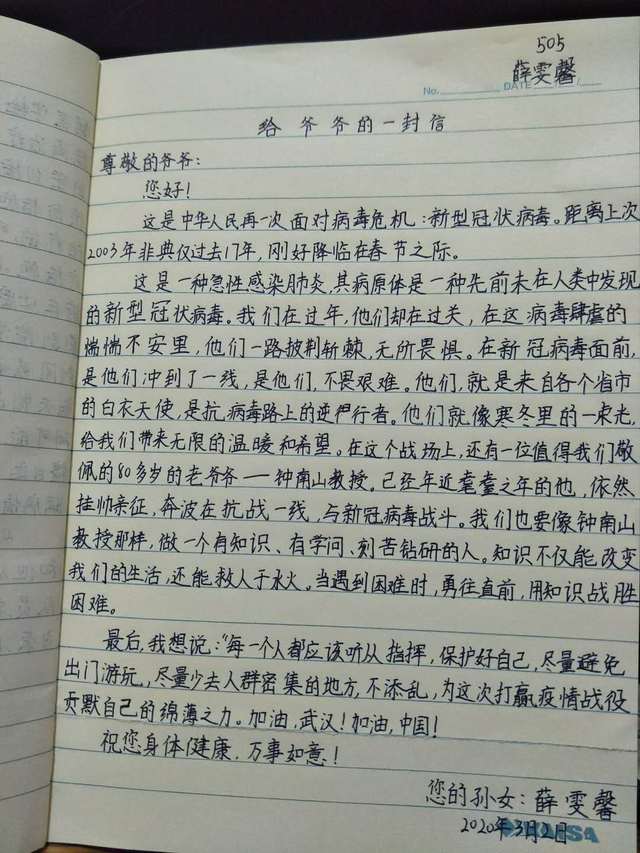 505
薛雯馨
No. DATE
给爷爷的一封信
尊敬的爷爷:
您好!
这是中华人民再一次面对病毒危机:新型冠状病毒。距离上次
2003年非典仅过去17年,刚好降临在春节之际。
这是一种急性感染肺炎,其病原体是一种先前未在人类中发现
的新型冠状病毒。我们在过年,他们却在过关,在这病毒肆虐的
惴惴不安里,他们一路披荆斩棘,无所畏惧。在新冠病毒面前,
是他们冲到了一线,是他们,不畏艰难。他们,就是来自各个省市
的白衣天使,是抗病毒路上的逆行者。他们就像寒冬里的一束光,
给我们带来无限的温暖和希望。在这个战场上,还有一位值得我们敬
佩的80多岁的老爷爷——钟南山教授。已经年近耄耋之年的他,依然
挂帅亲征,奔波在抗战一线,与新冠病毒战斗。我们也要像钟南山
教授那样,做一个有知识、有学问、刻苦钻研的人。知识不仅能改变
我们的生活,还能救人于水火。当遇到困难时,勇往直前,用知识战胜
困难。
最后,我想说:“每一个人都应该听从指挥,保护好自己,尽量避免
出门游玩,尽量少去人群密集的地方,不添乱,为这次打赢疫情战役
贡默自己的绵薄之力。加油,武汉!加油,中国!
祝您身体健康,万事如意!
您的孙女:薛雯馨
2020年3月2日